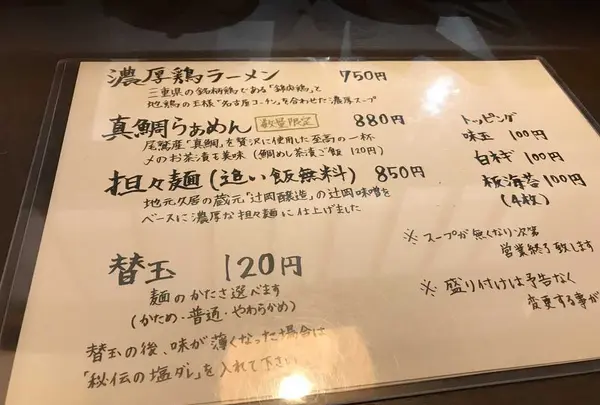 濃厚鶏ラーメン 750円
三重県の銘柄鶏である「錦肉鶏」と
地鶏の王様"名古屋コーチン"を合わせた濃厚スープ
真鯛らぁめん 数量限定 880円
尾鷲産"真鯛"を贅沢に使用した至高の一杯
〆のお茶漬も美味(鯛めし茶漬ご飯 120円)
担々麺(追い飯無料) 850円
地元久居の蔵元"辻岡醸造"の辻岡味噌を
ベースに濃厚な担々麺に仕上げました
替玉 120円
麺のかたさ選べます
(かため・普通・やわらかめ)
替玉の後、味が薄くなった場合は
「秘伝の塩ダレ」を入れて下さい
トッピング
味玉 100円
白ネギ 100円
板海苔 100円
(4枚)
※スープが無くなり次第
営業終了致します
※盛り付けは予告なく
変更する事が